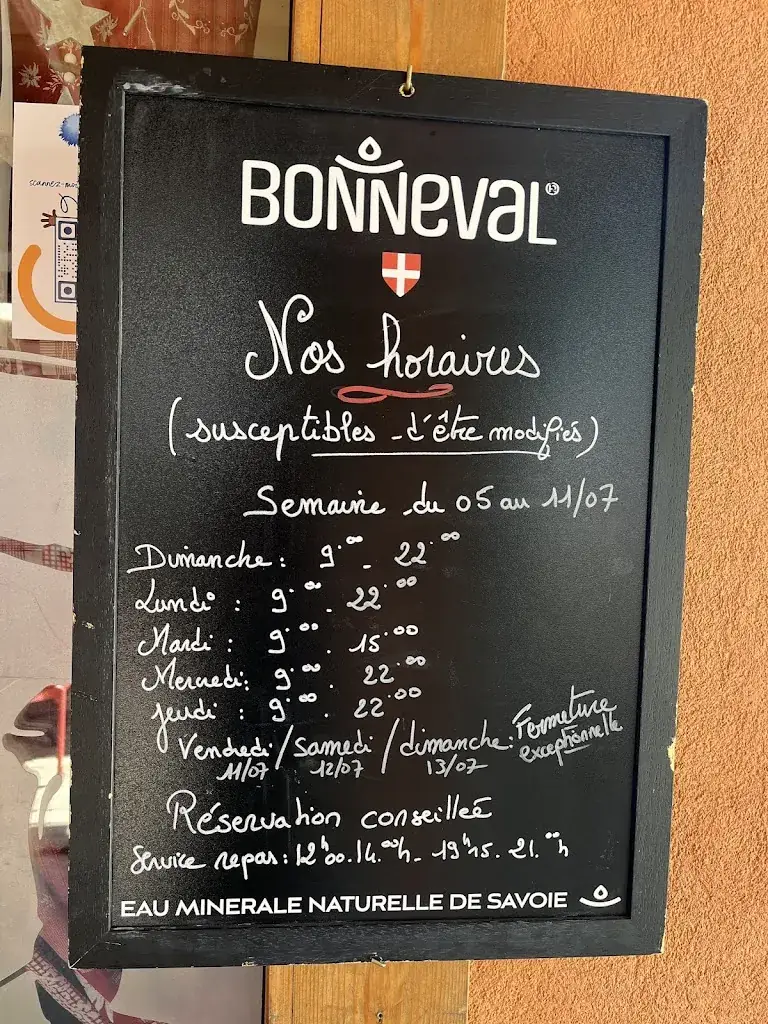 scannez-moi
BONNEVAL®
Nos horaires
(susceptibles d'être modifiés)
Semaine du 05 au 11/07
Dimanche : 9.00 - 22.00
Lundi : 9.00 . 22.00
Mardi : 9.00 . 15.00
Mercredi : 9.00 . 22.00
Jeudi : 9.00 . 22.00
Vendredi / Samedi / dimanche : Fermeture exceptionnelle
11/07 12/07 13/07
Réservation conseilleé
Service repas : 12h00.14.00h - 19h15. 21.00h
EAU MINERALE NATURELLE DE SAVOIE